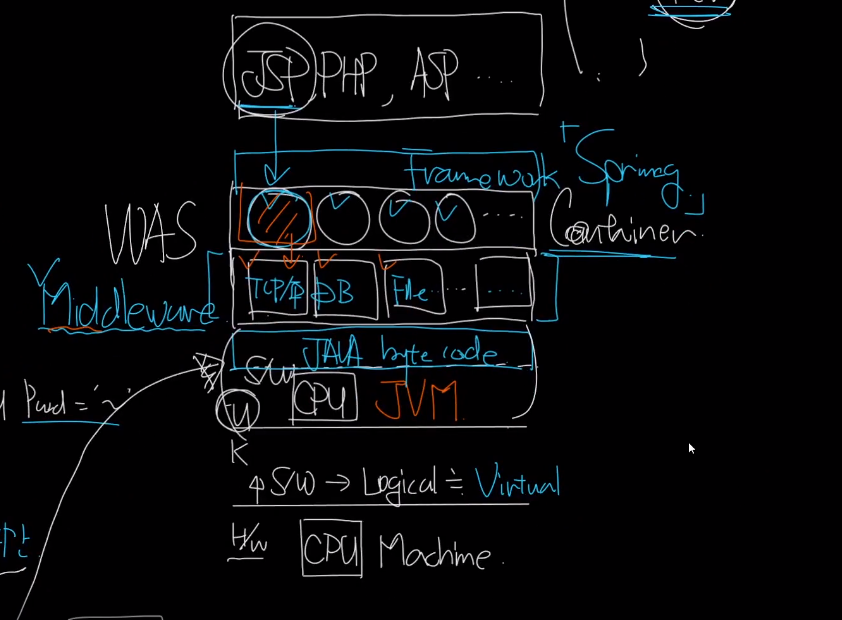 JSP PHP, ASP ....
Framework
「Spring」
WAS
....
Container.
Middleware
TCP/IP DB File ... ....
JAVA byte code
S/W
CPU JVM
U
Pwd = '~'
K
S/W → Logical ≒ Virtual
H/W CPU Machine.